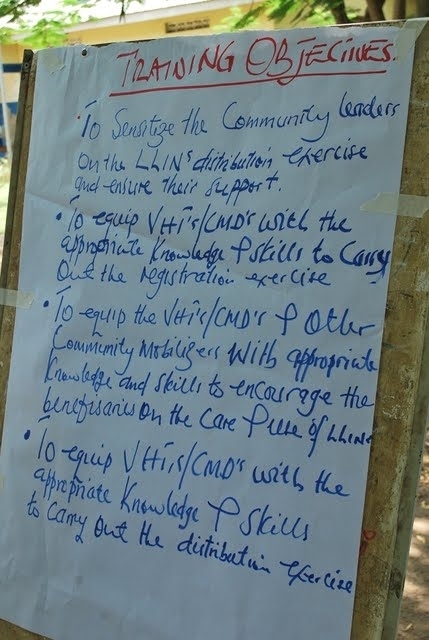 TRAINING OBJECTIVES.
• To Sensitize the Community leaders
on the LLINs distribution exercise
and ensure their support.
• To equip VHTs/CMD's with the
appropriate knowledge & skills to Carry
Out the registration exercise
• To equip the VHTs/CMD's & Other
Community Mobilizers With appropriate
knowledge and skills to encourage the
benefisaries on the Care & use of LLINs
• To equip VHTs/CMD's with the
appropriate knowledge & Skills
to Carry Out the distribution exercise